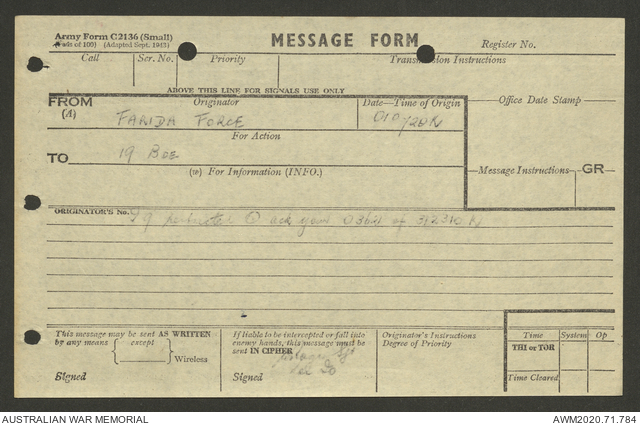 Army Form C2136 (Small)
(Pads of 100) (Adapted Sept. 1943)
MESSAGE FORM
Register No.
Call Ser. No. Priority Transmission Instructions
ABOVE THIS LINE FOR SIGNALS USE ONLY
FROM Originator Date—Time of Origin Office Date Stamp
(A) FARIDA FORCE
For Action
TO 19 BDE
(w) For Information (INFO.) Message Instructions GR
ORIGINATOR'S No. ack your of 312310 K
This message may be sent AS WRITTEN
by any means except
Wireless
Signed
If liable to be intercepted or fall into
enemy hands, this message must be
sent IN CIPHER
Signed
Originator's Instructions
Degree of Priority
Time System Op
THI or TOR
Time Cleared
AUSTRALIAN WAR MEMORIAL AWM2020.71.784